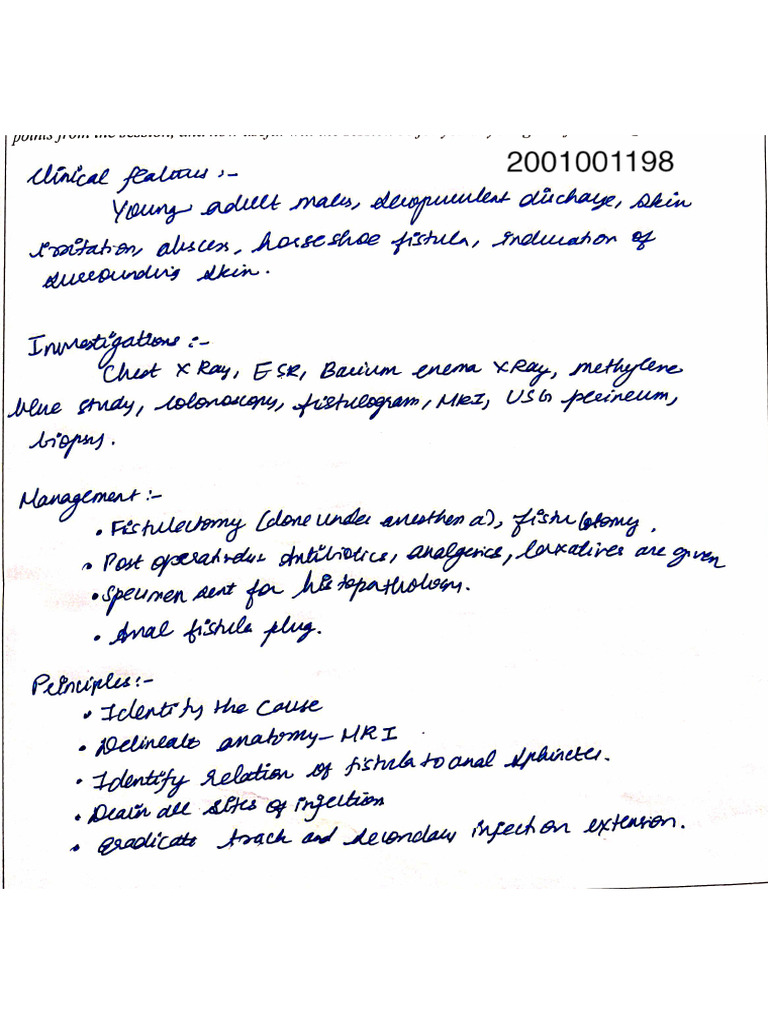 points from the session, and how useful will the session
2001001198
Clinical features :-
Young adult males, seropurulent discharge, skin
irritation, abscess, horseshoe fistula, induration of
surrounding skin.
Investigations :-
Chest X Ray, ESR, Barium enema X Ray, methylene
blue study, colonoscopy, fistulogram, MRI, USG perineum,
biopsy.
Management :-
• Fistulectomy (done under anesthen a), fistulotomy.
• Post operative antibiotics, analgesics, laxatives are given
• Specimen sent for histopathology.
• Anal fistula plug.
Principles :-
• Identify the cause
• Delineate anatomy - MRI
• Identify relation of fistula to anal sphincter.
• Drain all sites of infection
• eradicate track and secondary infection extension.